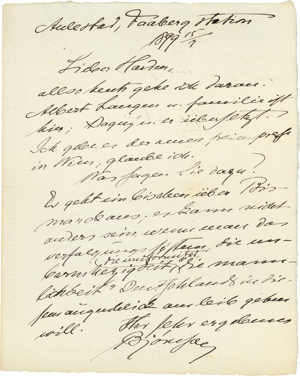 Aulestad, Faaberg station
1899 15/7
Lieber Harden,
alles heut gebe ich daran.
Albert Langen u. familie ist
hier; Dagny u. er übersetzt.
Ich gebe es der neuen freien presse
in Wien, glaube ich.
Was sagen Sie dazu?
Es geht ein bischen über Bis-
marck aus; es kann nicht
anders sein wenn man das
verfolgungssystem, die un-
barmherzigkeit, die mann-
lichkeit" Deutschlands in die-
sem augenblick am leib gehen
will. Ihr sehr ergebener
Bjørnson